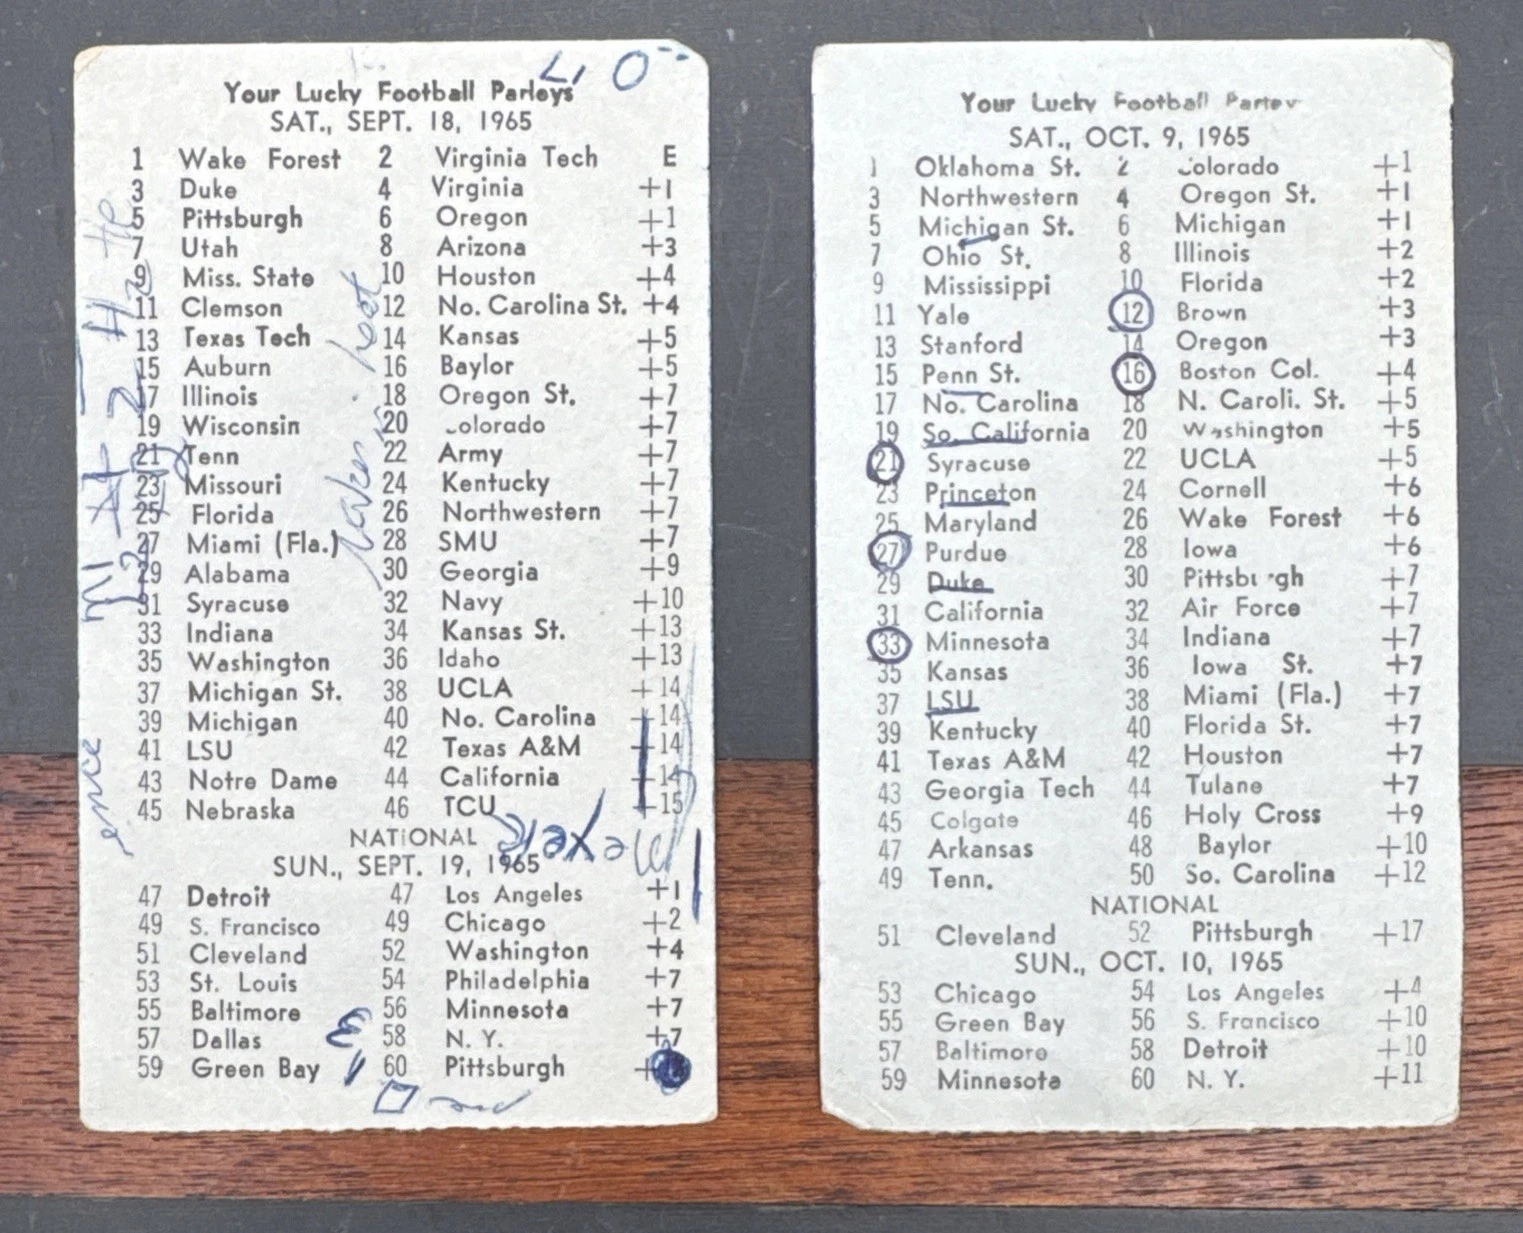 Your Lucky Football Parleys
SAT., SEPT. 18, 1965
1 Wake Forest 2 Virginia Tech E
3 Duke 4 Virginia +1
5 Pittsburgh 6 Oregon +1
7 Utah 8 Arizona +3
9 Miss. State 10 Houston +4
11 Clemson 12 No. Carolina St. +4
13 Texas Tech 14 Kansas +5
15 Auburn 16 Baylor +5
17 Illinois 18 Oregon St. +7
19 Wisconsin 20 olorado +7
21 Tenn 22 Army +7
23 Missouri 24 Kentucky +7
25 Florida 26 Northwestern +7
27 Miami (Fla.) 28 SMU +7
29 Alabama 30 Georgia +9
31 Syracuse 32 Navy +10
33 Indiana 34 Kansas St. +13
35 Washington 36 Idaho +13
37 Michigan St. 38 UCLA +14
39 Michigan 40 No. Carolina +14
41 LSU 42 Texas A&M +14
43 Notre Dame 44 California +14
45 Nebraska 46 TCU +15
NATIONAL
SUN., SEPT. 19, 1965
47 Detroit 47 Los Angeles +1
49 S. Francisco 49 Chicago +2
51 Cleveland 52 Washington +4
53 St. Louis 54 Philadelphia +7
55 Baltimore 56 Minnesota +7
57 Dallas 58 N. Y. +7
59 Green Bay 60 Pittsburgh
Your Lucky Football Parley
SAT., OCT. 9, 1965
1 Oklahoma St. 2 olorado +1
3 Northwestern 4 Oregon St. +1
5 Michigan St. 6 Michigan +1
7 Ohio St. 8 Illinois +2
9 Mississippi 10 Florida +2
11 Yale 12 Brown +3
13 Stanford 14 Oregon +3
15 Penn St. 16 Boston Col. +4
17 No. Carolina 18 N. Caroli. St. +5
19 So. California 20 Washington +5
21 Syracuse 22 UCLA +5
23 Princeton 24 Cornell +6
25 Maryland 26 Wake Forest +6
27 Purdue 28 Iowa +6
29 Duke 30 Pittsburgh +7
31 California 32 Air Force +7
33 Minnesota 34 Indiana +7
35 Kansas 36 Iowa St. +7
37 LSU 38 Miami (Fla.) +7
39 Kentucky 40 Florida St. +7
41 Texas A&M 42 Houston +7
43 Georgia Tech 44 Tulane +7
45 Colgate 46 Holy Cross +9
47 Arkansas 48 Baylor +10
49 Tenn. 50 So. Carolina +12
NATIONAL
51 Cleveland 52 Pittsburgh +17
SUN., OCT. 10, 1965
53 Chicago 54 Los Angeles +4
55 Green Bay 56 S. Francisco +10
57 Baltimore 58 Detroit +10
59 Minnesota 60 N. Y. +11